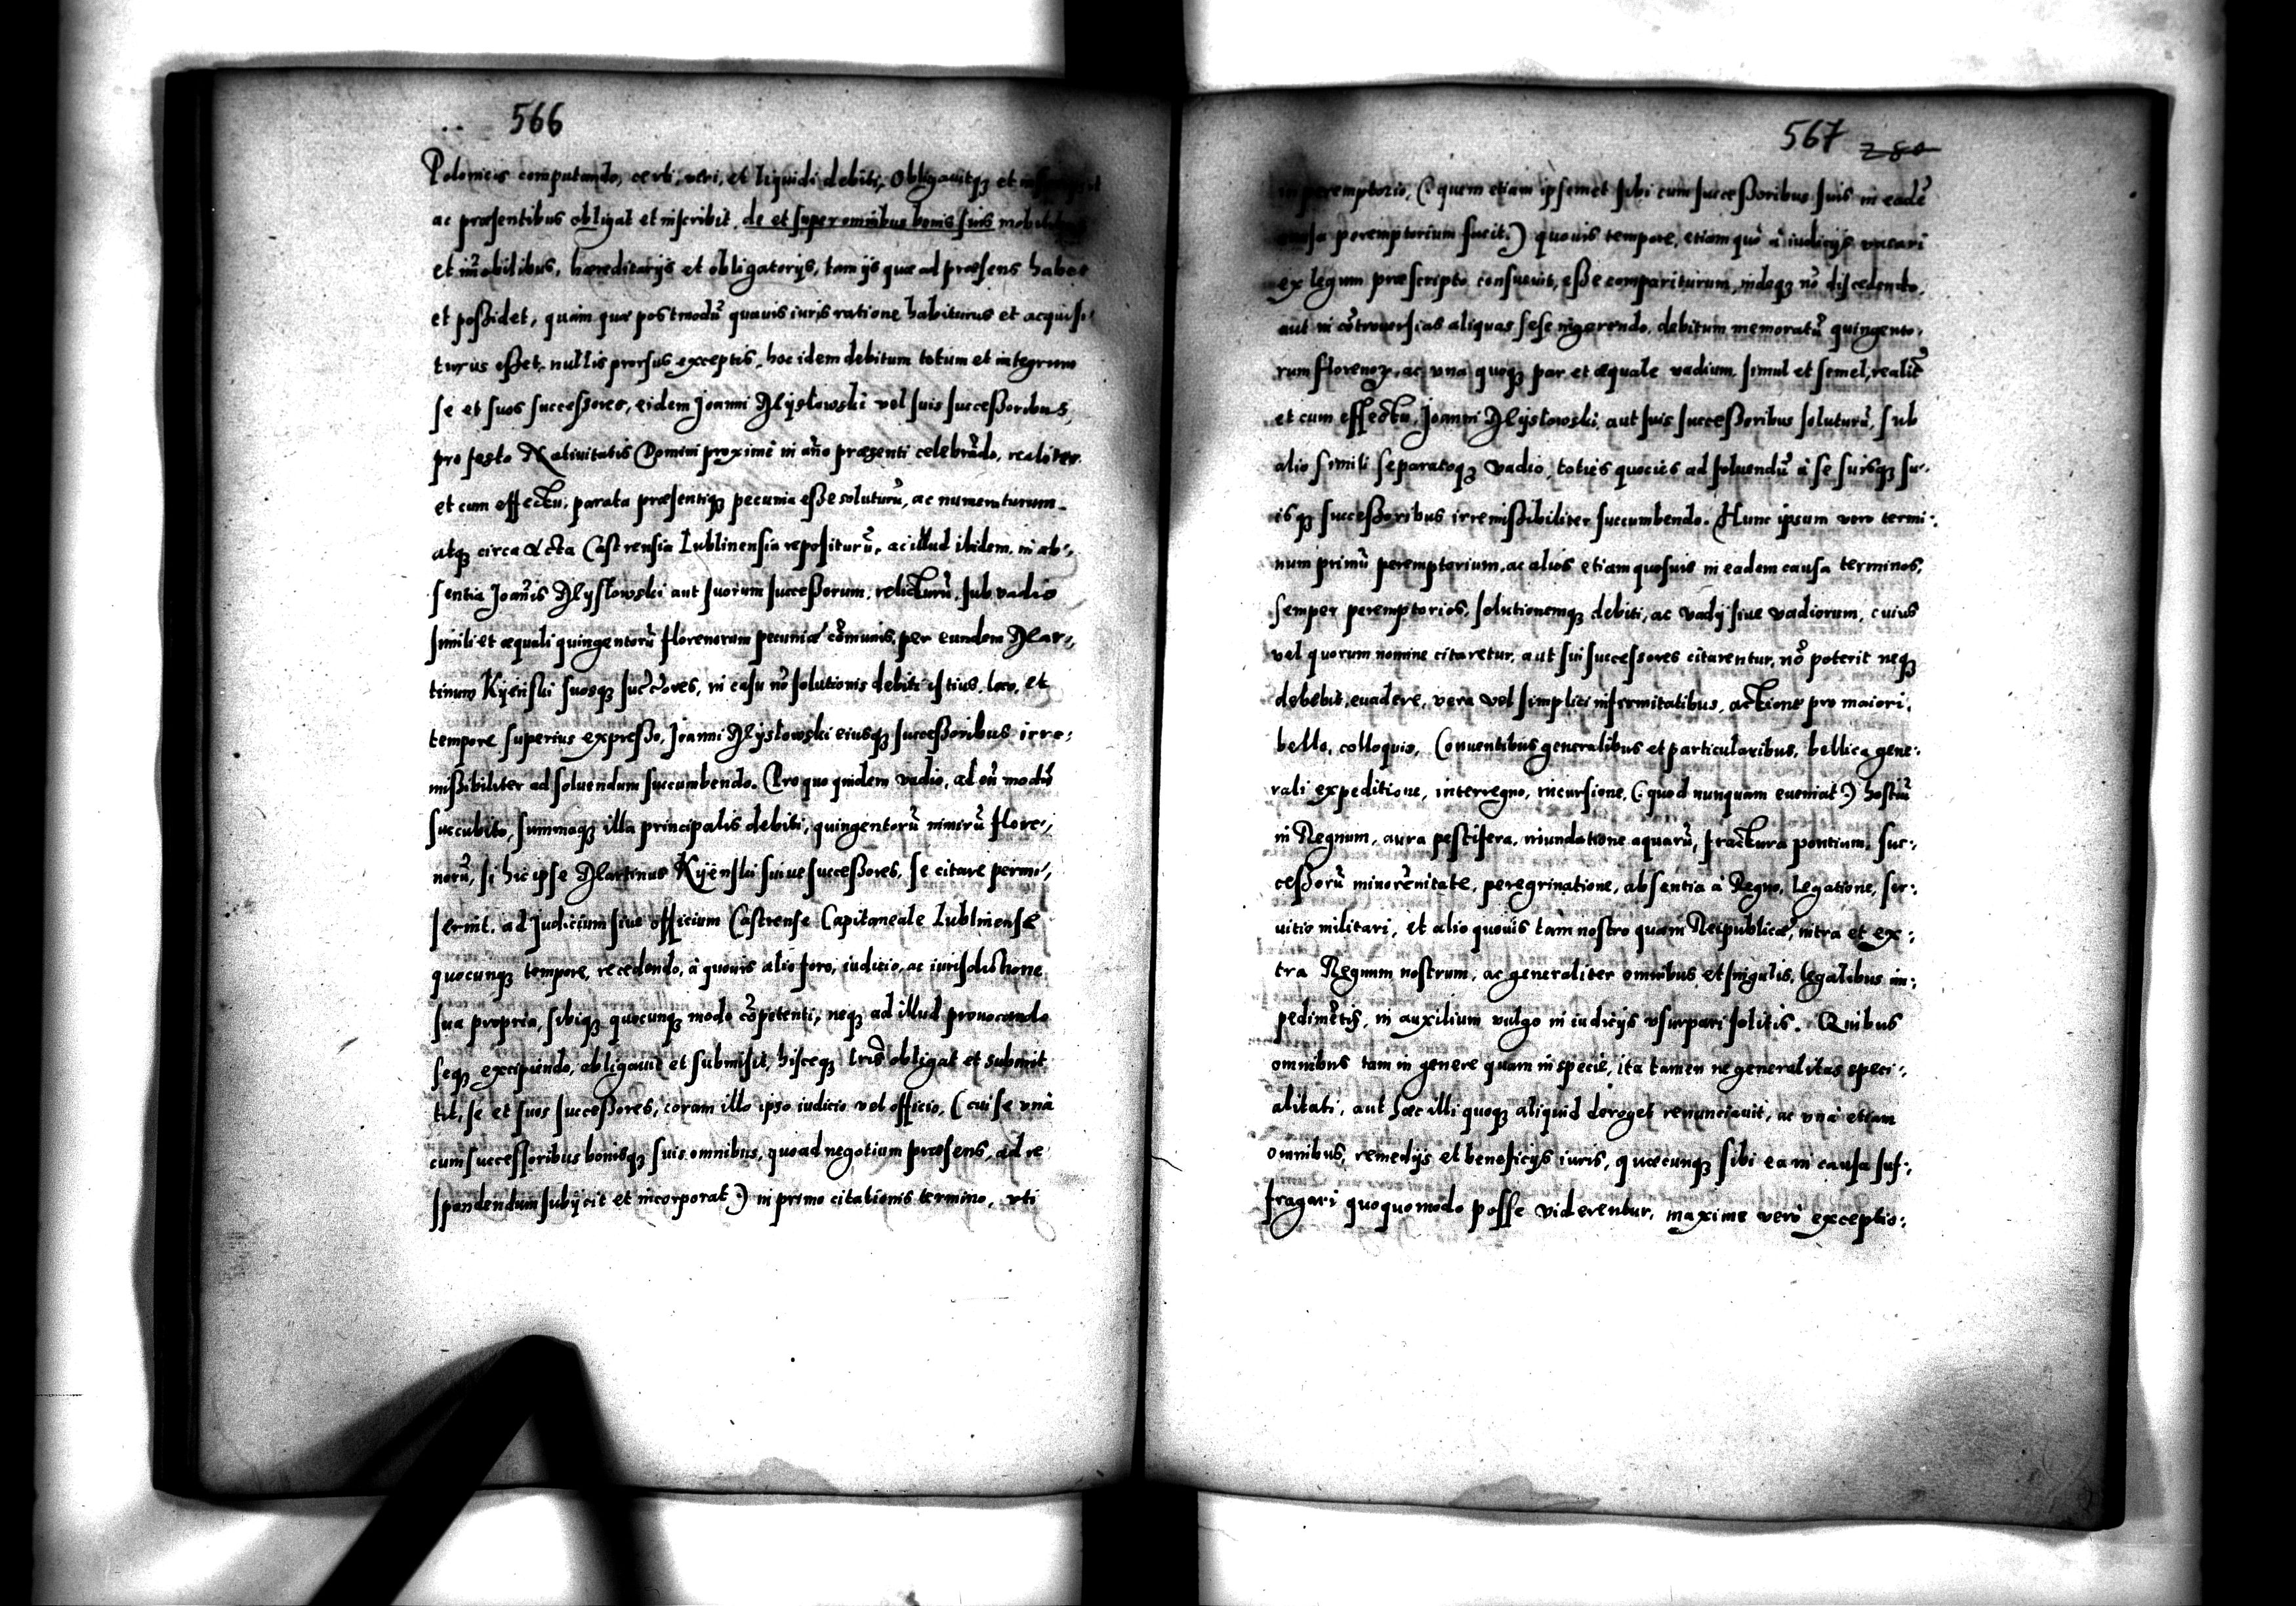 566
Polonicis computando, certi, veri, et liquidi debiti, Obligauitq₃ et
ac præsentibus obligat et inscribit, de et super omnibus bonis suis
et im̃obilibus, hæreditarijs et obligatorijs, tam ijs quæ ad præsens habet
et poßidet, quam quæ postmodũ quauis iuris ratione habiturus et acquisi-
turus eßet, nullis prorsus exceptis, hoc idem debitum totum et integrum
se et suos succeßores, eidem Joanni Myslowski vel suis succeßoribus,
pro festo Natiuitatis Domini proximè in año præsenti celebrãdo, realiter
et cum effectu, parata præsentiq₃ pecunia eße soluturũ, ac numeraturum
atq₃ circa Acta Castrensia Lublinensia repositurũ, ac illud ibidem, in ab-,
sentia Joañis Myslowski aut suorum succeßorum, relicturũ, sub vadio
simili et æquali quingentorũ florenorum pecuniæ cõmunis, per eundem Mar-,
tinum Kyẽnski suosq₃ succ̃ores, in casu nõ solutionis debiti istius, loco, et
tempore superius expreßo, Joanni Myslowski eiusq₃ succeßoribus irre:
mißibiliter ad soluendum succumbendo. Pro quo quidem vadio, ad eũ modũ
succubito, summaq₃ illa principalis debiti, quingentorũ nimirũ flore-,
norũ, si hic ipse Martinus Kyẽnski suiue succeßores, se citare permi-,
serint, ad Judicium siue officium Castrense Capitaneale Lublinense
quocunq₃ tempore, recedendo, à quouis alio foro, iudicio, ac iurisdictione
sua propria, sibiq₃ quocunq₃ modo cõpetenti, neq₃ ad illud prouocando
seq₃ excipiendo, obligauit et submisit, hisceq₃ lr̃is obligat et submit
tit, se et suos succeßores, coram illo ipso iudicio vel officio, (cui se vnà
cum successoribus bonisq₃ suis omnibus, quoad negotium præsens, ad re
spondendum subijcit et incorporat:) in primo citationis termino, vti
567 280
peremptorio, (:quem etiam ipsemet sibi cum succeßoribus suis in eadẽ
causa peremptorium facit:) quouis tempore, etiam quo à iudicijs vacari
ex legum præscripto consueuit, eße compariturum, indeq₃ nõ discedendo,
aut in cõtrouersias aliquas sese ingerendo, debitum memoratũ quingento-
rum florenoꝝ, ac vna quoq₃ par et æquale vadium, simul et semel, realit̃
et cum effectu, Joanni Myslowski, aut suis succeßoribus soluturũ, sub
alio simili separatoq₃ vadio, toties quoties ad soluendũ à se suisq₃ su-,
isq₃ succeßoribus irremißibiliter succumbendo. Hunc ipsum vero termi-,
num primũ peremptorium, ac alios etiam quosuis in eadem causa terminos,
semper peremptorios, solutionemq₃ debiti, ac vadij siue vadiorum, cuius
vel quorum nomine citaretur, aut sui successores citarentur, nõ poterit neq₃
debebit, euadere, vera vel simplici infirmitatibus, actione pro maiori,
bello, colloquio, Conuentibus generalibus et particularibus, bellica gene-,
rali expeditione, interregno, incursione, (:quod nunquam eueniat:) hostiũ
in Regnum, aura pestifera, inundatione aquarũ, fractura pontium, suc-,
ceßorũ minorẽnitate, peregrinatione, absentia à Regno, Legatione, ser-,
uitio militari, et alio quouis tam nostro quàm Reipublicæ, intra et ex-,
tra Regnum nostrum, ac generaliter omnibus et singulis, legalibus im-,
pedimẽtis, in auxilium vulgo in iudicijs vsurpari solitis. Quibus
omnibus tam in genere quam in specie, ita tamen ne generalitas speci-,
alitati, aut hæc illi quoq₃ aliquid deroget renunciauit, ac vnà etiam
omnibus, remedijs et beneficijs iuris, quæcunq₃ sibi ea in causa suf-,
fragari quoquomodo posse viderentur, maxime verò exceptio-,